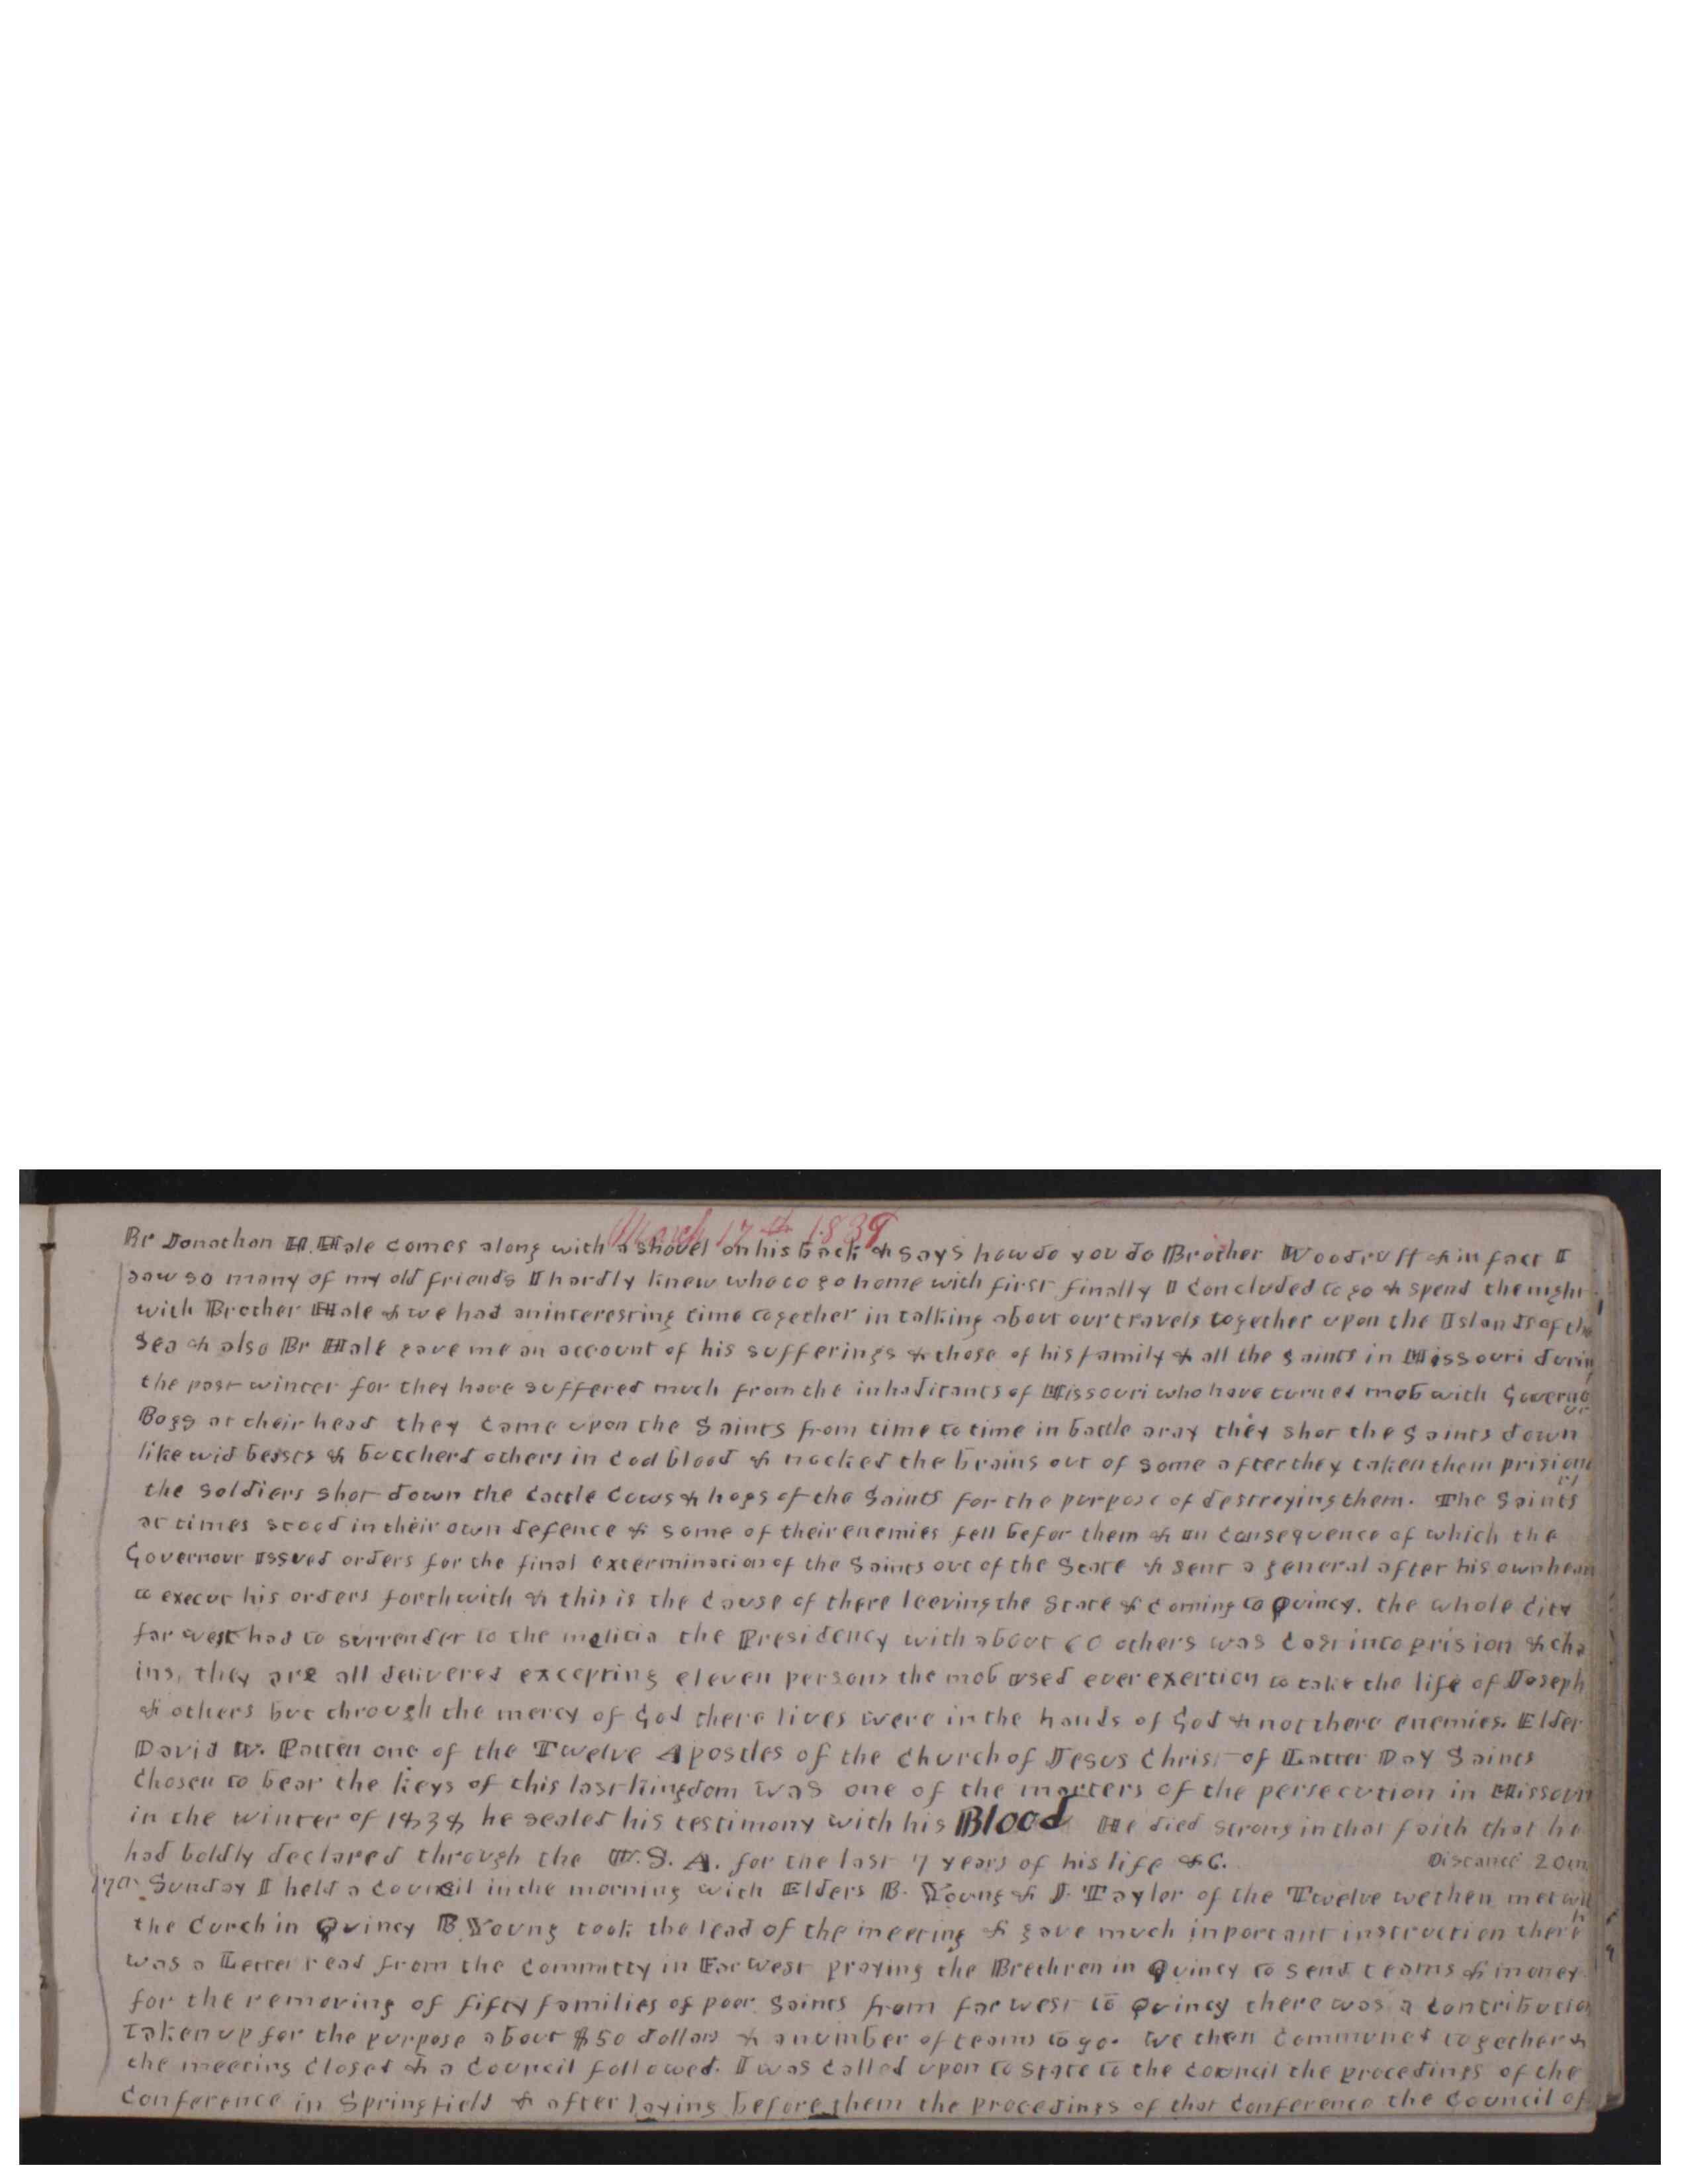 March 17th 1839
Br Jonathan H. Hale comes along with a shovel on his back & says how do you do Brother Woodruff & in fact I
saw so many of my old friends I hardly knew who to go home with first finally I concluded to go & spend the night
with Brother Hale & we had an interesting time together in talking about our travels together upon the Islands of the
Sea & also Br Hale gave me an account of his sufferings & those of his family & all the saints in Missouri during
the past winter for they have suffered much from the inhabitants of Missouri who have turned mob with Governour
Bogg at their head they came upon the Saints from time to time in battle aray they shot the Saints down
like wid beasts & butcherd others in cool blood & nocked the brains out of some after they taken them prisioners
the soldiers shot down the cattle cows & hogs of the Saints for the purpose of destroying them. The Saints
at times stood in their own defence & some of their enemies fell befor them & in consequence of which the
Governour issued orders for the final extermination of the Saints out of the State & sent a general after his own heart
to execut his orders forthwith & this is the cause of there leeving the State & coming to Quincy. the whole city
far west had to surrender to the melitia the Presidency with about 60 others was cast into prision & cha
ins, they are all delivered excepting eleven persons the mob used ever exertion to take the life of Joseph
& others but through the mercy of God there lives were in the hands of God & not there enemies. Elder
David W. Patten one of the Twelve Apostles of the Church of Jesus Christ of Latter Day Saints
Chosen to bear the keys of this last kingdom was one of the marters of the persecution in Missouri
in the winter of 1838 he sealed his testimony with his Blood He died strong in that faith that he
had boldly declared through the U.S.A. for the last 7 years of his life &c. Distance 20 m
17th Sunday I held a Council in the morning with Elders B. Young & J. Taylor of the Twelve we then met with
the Curch in Quincy B Young took the lead of the meeting & gave much inportant instruction there
was a Letter read from the Committy in Far West praying the Brethren in Quincy to send teams & money
for the removing of fifty families of poor Saints from far west to Quincy there was a contribution
Taken up for the purpose about $50 dollars & a number of teams to go. We then communed together &
the meeting closed & a Council followed. I was called upon to State to the council the procedings of the
Conference in Springfield & after laying before them the procedings of that Conference the Council of